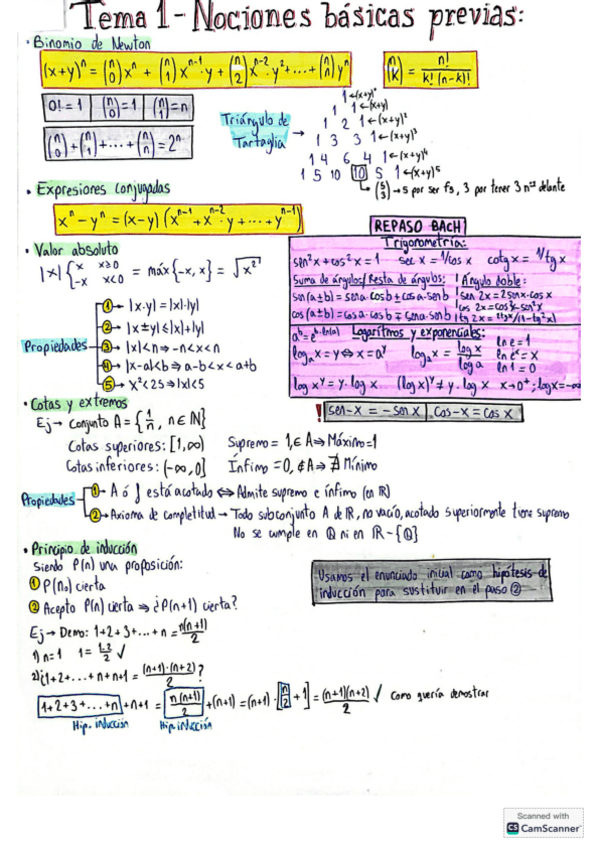 Tema 1 - Nociones básicas previas:
· Binomio de Newton
(x+y)ⁿ = (n 0)xⁿ + (n 1)xⁿ⁻¹·y + (n 2)xⁿ⁻²·y² + ... + (n n)yⁿ
(n k) = n! / k!(n-k)!
0! = 1 | (n 0) = 1 | (n 1) = n
(n 0) + (n 1) + ... + (n n) = 2ⁿ
Triángulo de Tartaglia →
1 ← (x+y)⁰
1 1 ← (x+y)
1 2 1 ← (x+y)²
1 3 3 1 ← (x+y)³
1 4 6 4 1 ← (x+y)⁴
1 5 10 10 5 1 ← (x+y)⁵
(5 3) → 5 por ser f5, 3 por tener 3 nºs delante
· Expresiones conjugadas
xⁿ - yⁿ = (x-y)(xⁿ⁻¹ + xⁿ⁻²·y + ... + yⁿ⁻¹)
· Valor absoluto
|x| { x x≥0
-x x<0 = máx{-x, x} = √x²
Propiedades
1 → |x·y| = |x|·|y|
2 → |x±y| ≤ |x|+|y|
3 → |x|<n ⇒ -n<x<n
4 → |x-a|<b ⇒ a-b<x<a+b
5 → x²<25 ⇒ |x|<5
REPASO BACH
Trigonometría:
sen²x + cos²x = 1 sec x = 1/cos x cotg x = 1/tg x
Suma de ángulos / Resta de ángulos: Ángulo doble:
sin(a±b) = sen a · cos b ± cos a · sen b sen 2x = 2senx·cosx
cos(a±b) = cos a · cos b ∓ sen a · sen b cos 2x = cos²x - sen²x
tg 2x = 2tgx/(1-tg²x)
aᵇ = eᵇ·ˡⁿ⁽ᵃ⁾ Logaritmos y exponenciales:
logₐ x = y ⇔ x = aʸ logₐ x = log x / log a
ln e = 1
ln eˣ = x
ln 1 = 0
log xʸ = y · log x (log x)ʸ ≠ y · log x x→0⁺; log x = -∞
! sen -x = - sen x | cos -x = cos x
· Cotas y extremos
Ej → conjunto A = {1/n, n ∈ ℕ}
Cotas superiores: [1, ∞) Supremo = 1, ∈ A ⇒ Máximo = 1
Cotas inferiores: (-∞, 0] Ínfimo = 0, ∉ A ⇒ ∄ Mínimo
Propiedades
1 → A ó f está acotado ⇔ Admite supremo e ínfimo (en ℝ)
2 → Axioma de completitud → Todo subconjunto A de ℝ, no vacío, acotado superiormente tiene supremo
No se cumple en ℚ ni en ℝ - {ℚ}
· Principio de inducción
Siendo P(n) una proposición:
1 P(n₀) cierta
2 Acepto P(n) cierta ⇒ ¿P(n+1) cierta?
Usamos el enunciado inicial como hipótesis de
inducción para sustituir en el paso 2
Ej → Demo: 1+2+3+...+n = n(n+1)/2
1) n=1 1 = 1·2/2 ✓
2) ¿1+2+...+n+n+1 = (n+1)·(n+2)/2?
1+2+3+...+n +n+1 = n(n+1)/2 + (n+1) = (n+1) · [n/2 + 1] = (n+1)(n+2)/2 ✓ como quería demostrar
Hip. inducción Hip. inducción
Scanned with
CS CamScanner